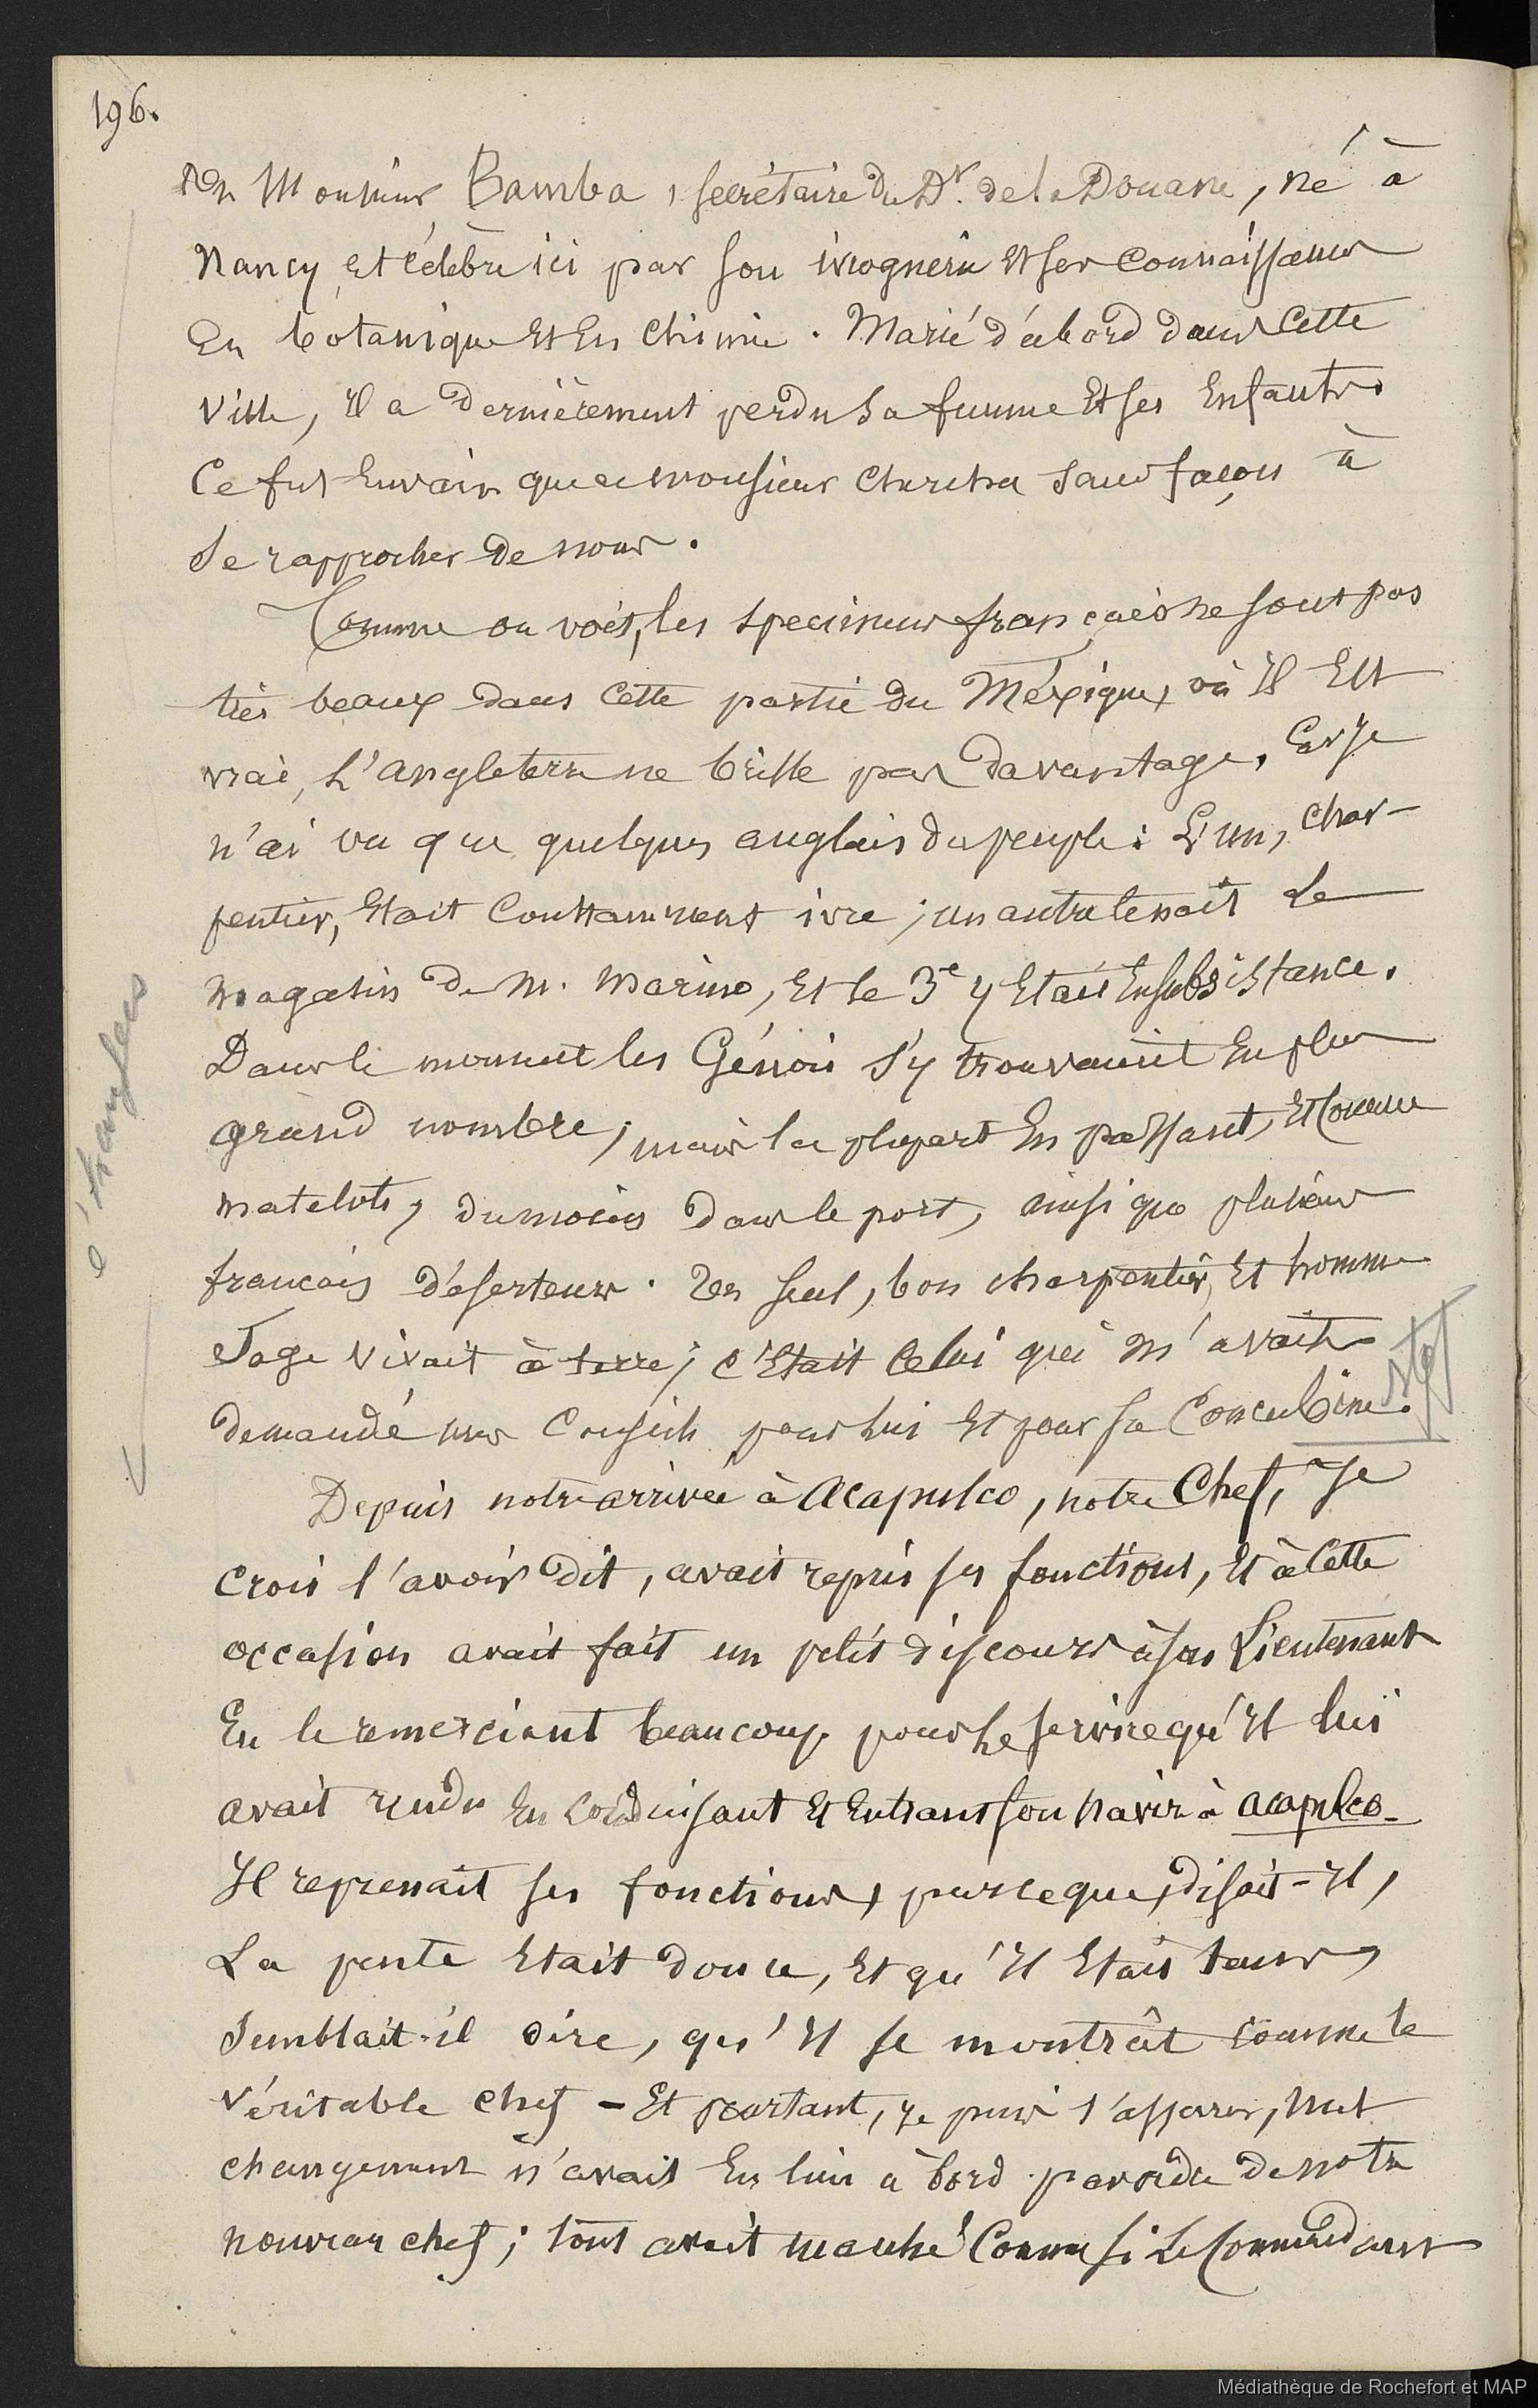 196.
Un Monsieur Bamba, secrétaire du Dr. de la Douane, né à
Nancy, et célèbre ici par son ivrognerie Et ses connaissances
En botanique Et En chimie. Marié d'abord dans Cette
ville, Il a dernièrement perdu sa femme Et ses Enfants.
Ce fut Envain que ce monsieur chercha sans façon à
se rapprocher de nous.
Comme on voit, les specimens français ne sont pas
très beaux dans Cette partie du Méxique, où Il Est
vrai, L'angleterre ne brille pas davantage, Car Je
n'ai vu que quelques anglais du peuple: L'un, char-
pentier, Etait Constamment ivre; un autre tenait Le
magasin de M. Marino, Et le 3e y Etait En subsistance.
Dans le moment les Génois s'y trouvaient En plus
grand nombre; mais la plupart En passant, Et Comme
matelots, du moins dans le port, ainsi que plusieurs
francais déserteurs. Un seul, bon charpentier, Et homme
sage vivait à terre; c'Etait Celui qui m'avait
demandé mes Conseils pour lui Et pour sa Concubine.
étrangers
Depuis notre arrivée à Acapulco, notre Chef, Je
crois l'avoir dit, avait repris ses fonctions, Et à Cette
occasion avait fait un petit discours à son Lieutenant
En le remerciant beaucoup pour Le service qu'Il lui
avait rendu En Conduisant Et Entrant son navire à acapulco_
Il reprenait ses fonctions, parceque, disait-Il,
La pente Etait douce, Et qu'Il Etait tems,
semblait-il dire, qu'Il se montrât comme le
véritable chef - Et pourtant, Je puis l'assurer, nul
changement n'avait Eu lieu à bord par ordre de notre
nouveau chef; tout avait marché Comme si Le Commandant
Médiathèque de Rochefort et MAP